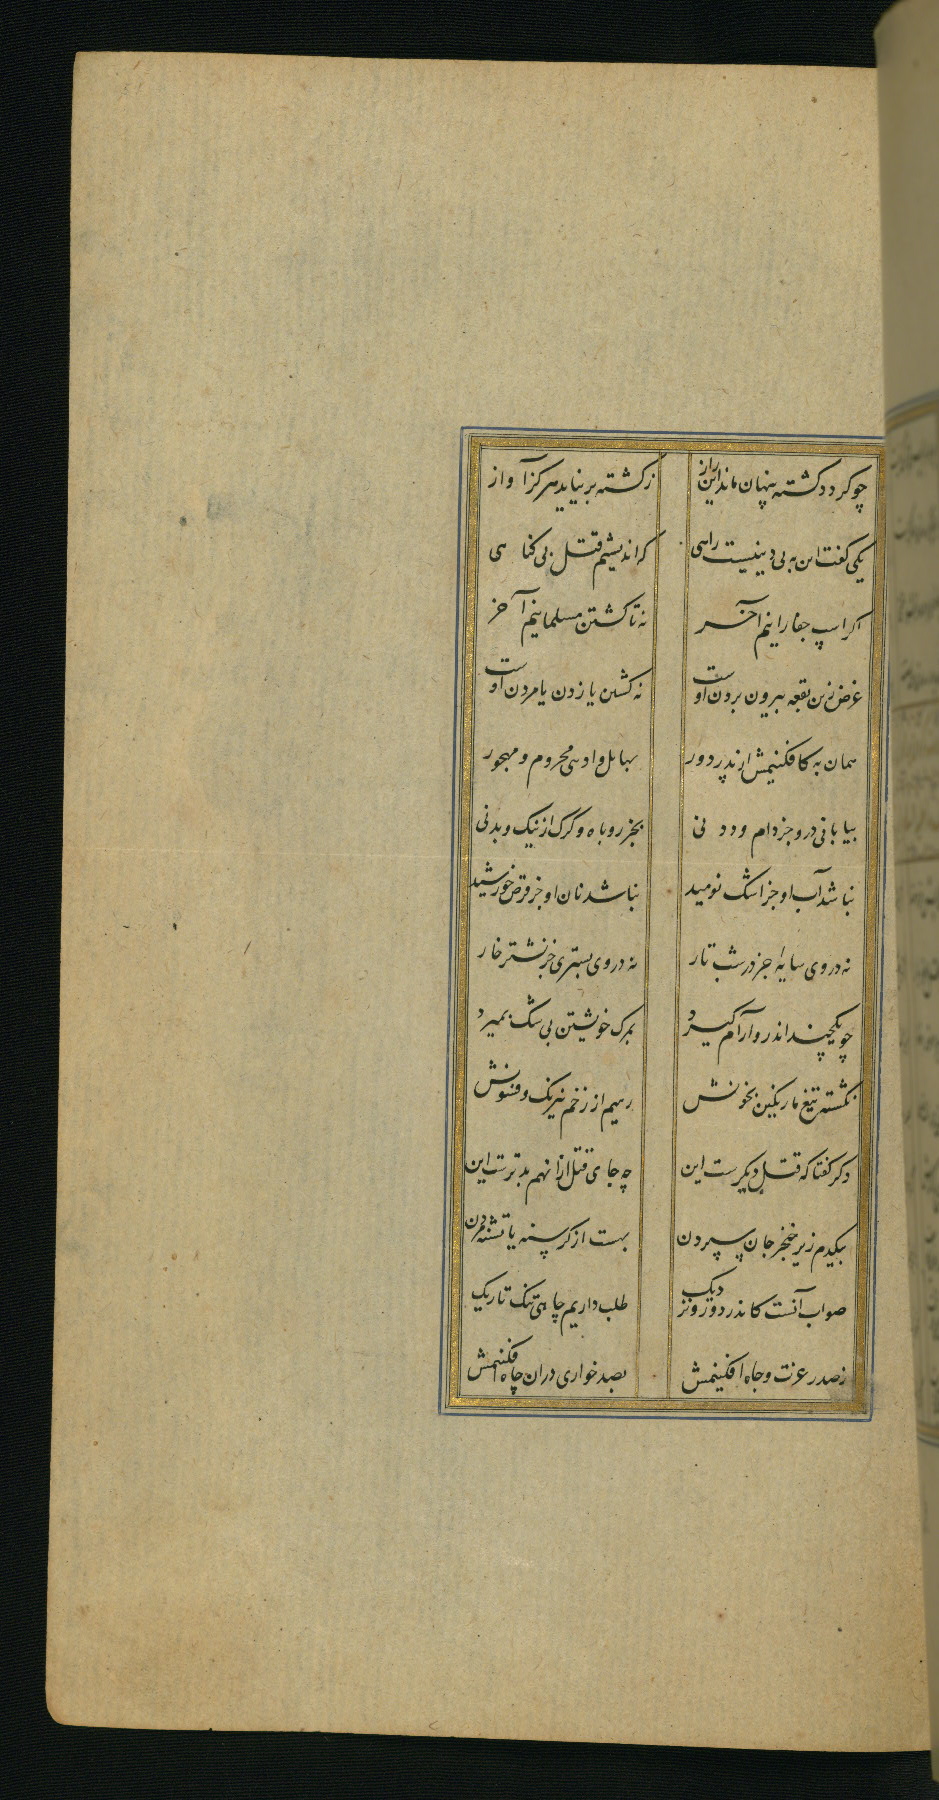 چو کردد کشته پنهان ماند این راز زکشته بر نیاید هرکز آواز
یکی کفت این به بی دینیست راهی که اندیشیم قتل بی کناهی
اکر اسپ جفا رانیم آخر نه تا کشتن مسلمانیم آخر
غرض زین بقعه بیرون بردن اوست نه کشتن یا زدن یا مردن اوست
همان به کافکنیمش از پدر دور بهایل وادی محروم و مهجور
بیابانی درو جز دام و دد نی بجز روباه و کرک از نیک و بد نی
نباشد آب او جز اشک نومید نباشد نان او جز قرص خورشید
نه در وی سایه جز در شب تار نه در وی بستری جز نشتر خار
چو یکچند اندرو آرام کیرد بمرک خویشتن بی شک بمیرد
نکشته تیغ ما رنکین بخونش رهیم از زخم نیرنک و فسونش
دکر کفتا که قتل دیکرست این چه جای قتل ازانهم بدترست این
بیکدم زیر خنجر جان سپردن بهست از کرسنه یا تشنه مردن
صواب آنست کاندر دور و نزدیک طلب داریم چاهی تنک تاریک
زصدر عزت و جاه افکنیمش بصد خواری دران چاه افکنیمش